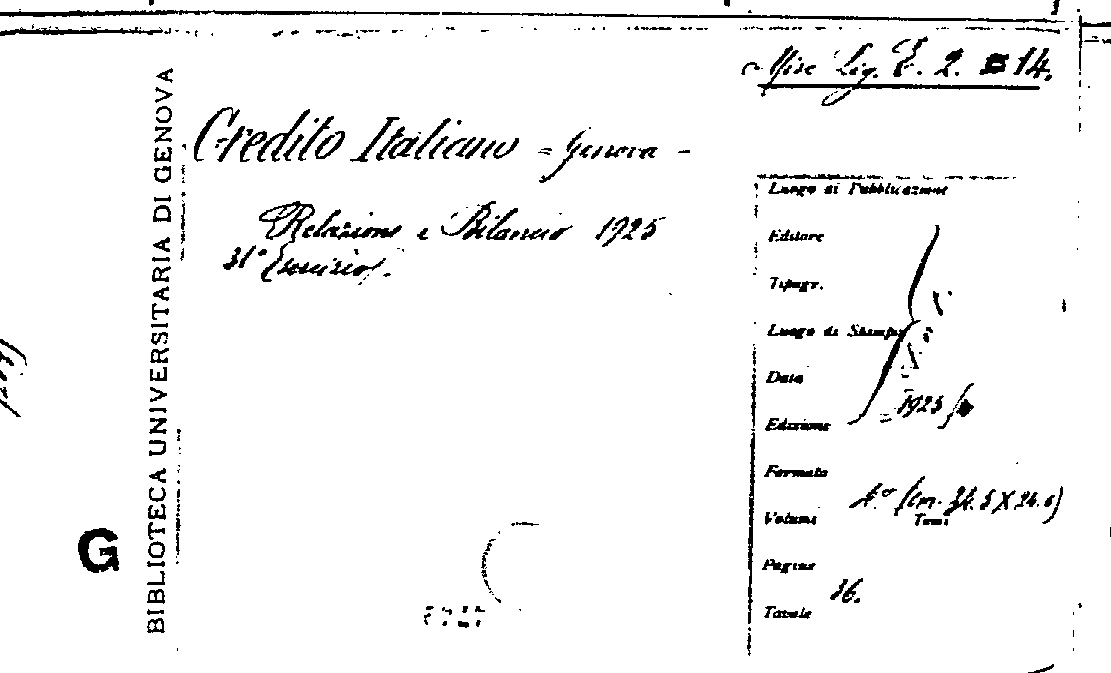 Misc Lig. E. 2. 14.
BIBLIOTECA UNIVERSITARIA DI GENOVA
G
Credito Italiano = Genova -
Relazione e Bilancio 1925
31° Esercizio.
Luogo di Pubblicazione
Editore
Tipogr.
Luogo di Stampa
Data
Edizione
1925
Formato
4° (cm. 34.5 X 24.6)
Volumi Tomi
Pagine
36.
Tavole